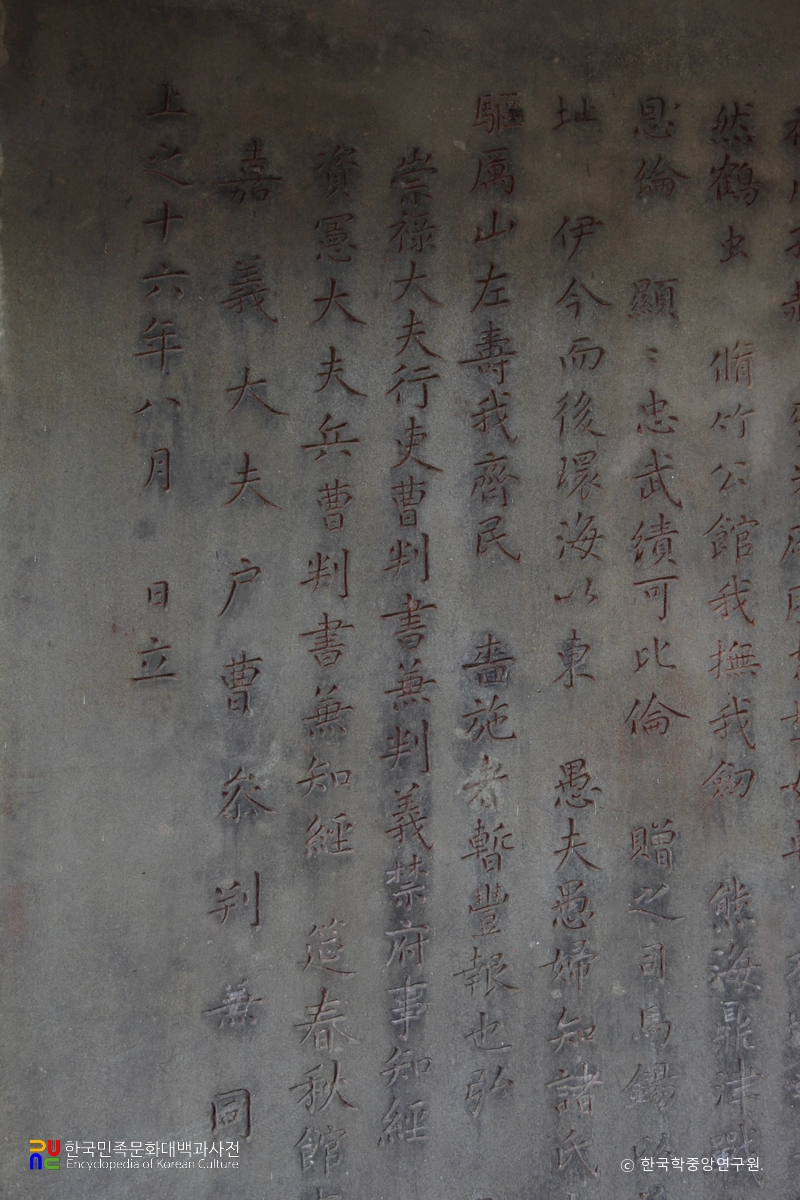 然鶴虫 脩竹公館我撫我劒 熊海鼎津戰
恩倫 顯〻忠武績可比倫 贈之司馬錫以
址 伊今而後環海以東 愚夫愚婦知諸氏
驅厲山左壽我齊民 嗇施者暫豊報也弘
崇祿大夫行吏曹判書兼判義禁府事知經
資憲大夫兵曹判書兼知經 筵春秋館
嘉義大夫户曹叅判兼同
上之十六年八月 日立
한국민족문화대백과사전
Encyclopedia of Korean Culture
© 한국학중앙연구원.